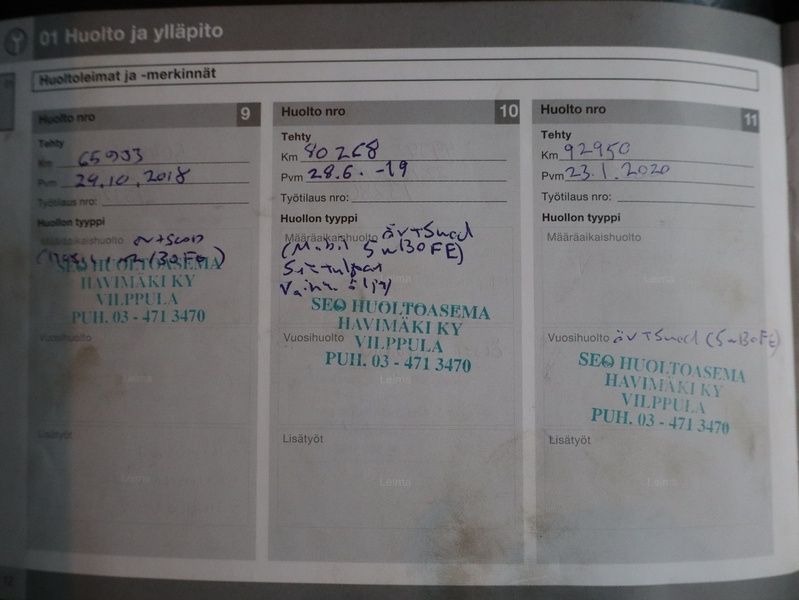 01 Huolto ja ylläpito
Huoltoleimat ja -merkinnät
Huolto nro 9
Tehty
Km 65993
Pvm 24.10.2018
Työtilaus nro:
Huollon tyyppi
Määräaikaishuolto öv+Suod
SEO HUOLTOASEMA
HAVIMÄKI KY
VILPPULA
PUH. 03 - 471 3470
Vuosihuolto
Leima
Lisätyöt
Leima
Huolto nro 10
Tehty
Km 80268
Pvm 28.6. -19
Työtilaus nro:
Huollon tyyppi
Määräaikaishuolto öv+Suod
(Mobil 5w30FE)
Vaiht. öljy
SEO HUOLTOASEMA
HAVIMÄKI KY
VILPPULA
PUH. 03 - 471 3470
Vuosihuolto
Leima
Lisätyöt
Leima
Huolto nro 11
Tehty
Km 92950
Pvm 23.1.2020
Työtilaus nro:
Huollon tyyppi
Määräaikaishuolto
Leima
Vuosihuolto öv+Suod (5w30FE)
SEO HUOLTOASEMA
HAVIMÄKI KY
VILPPULA
PUH. 03 - 471 3470
Lisätyöt
Leima